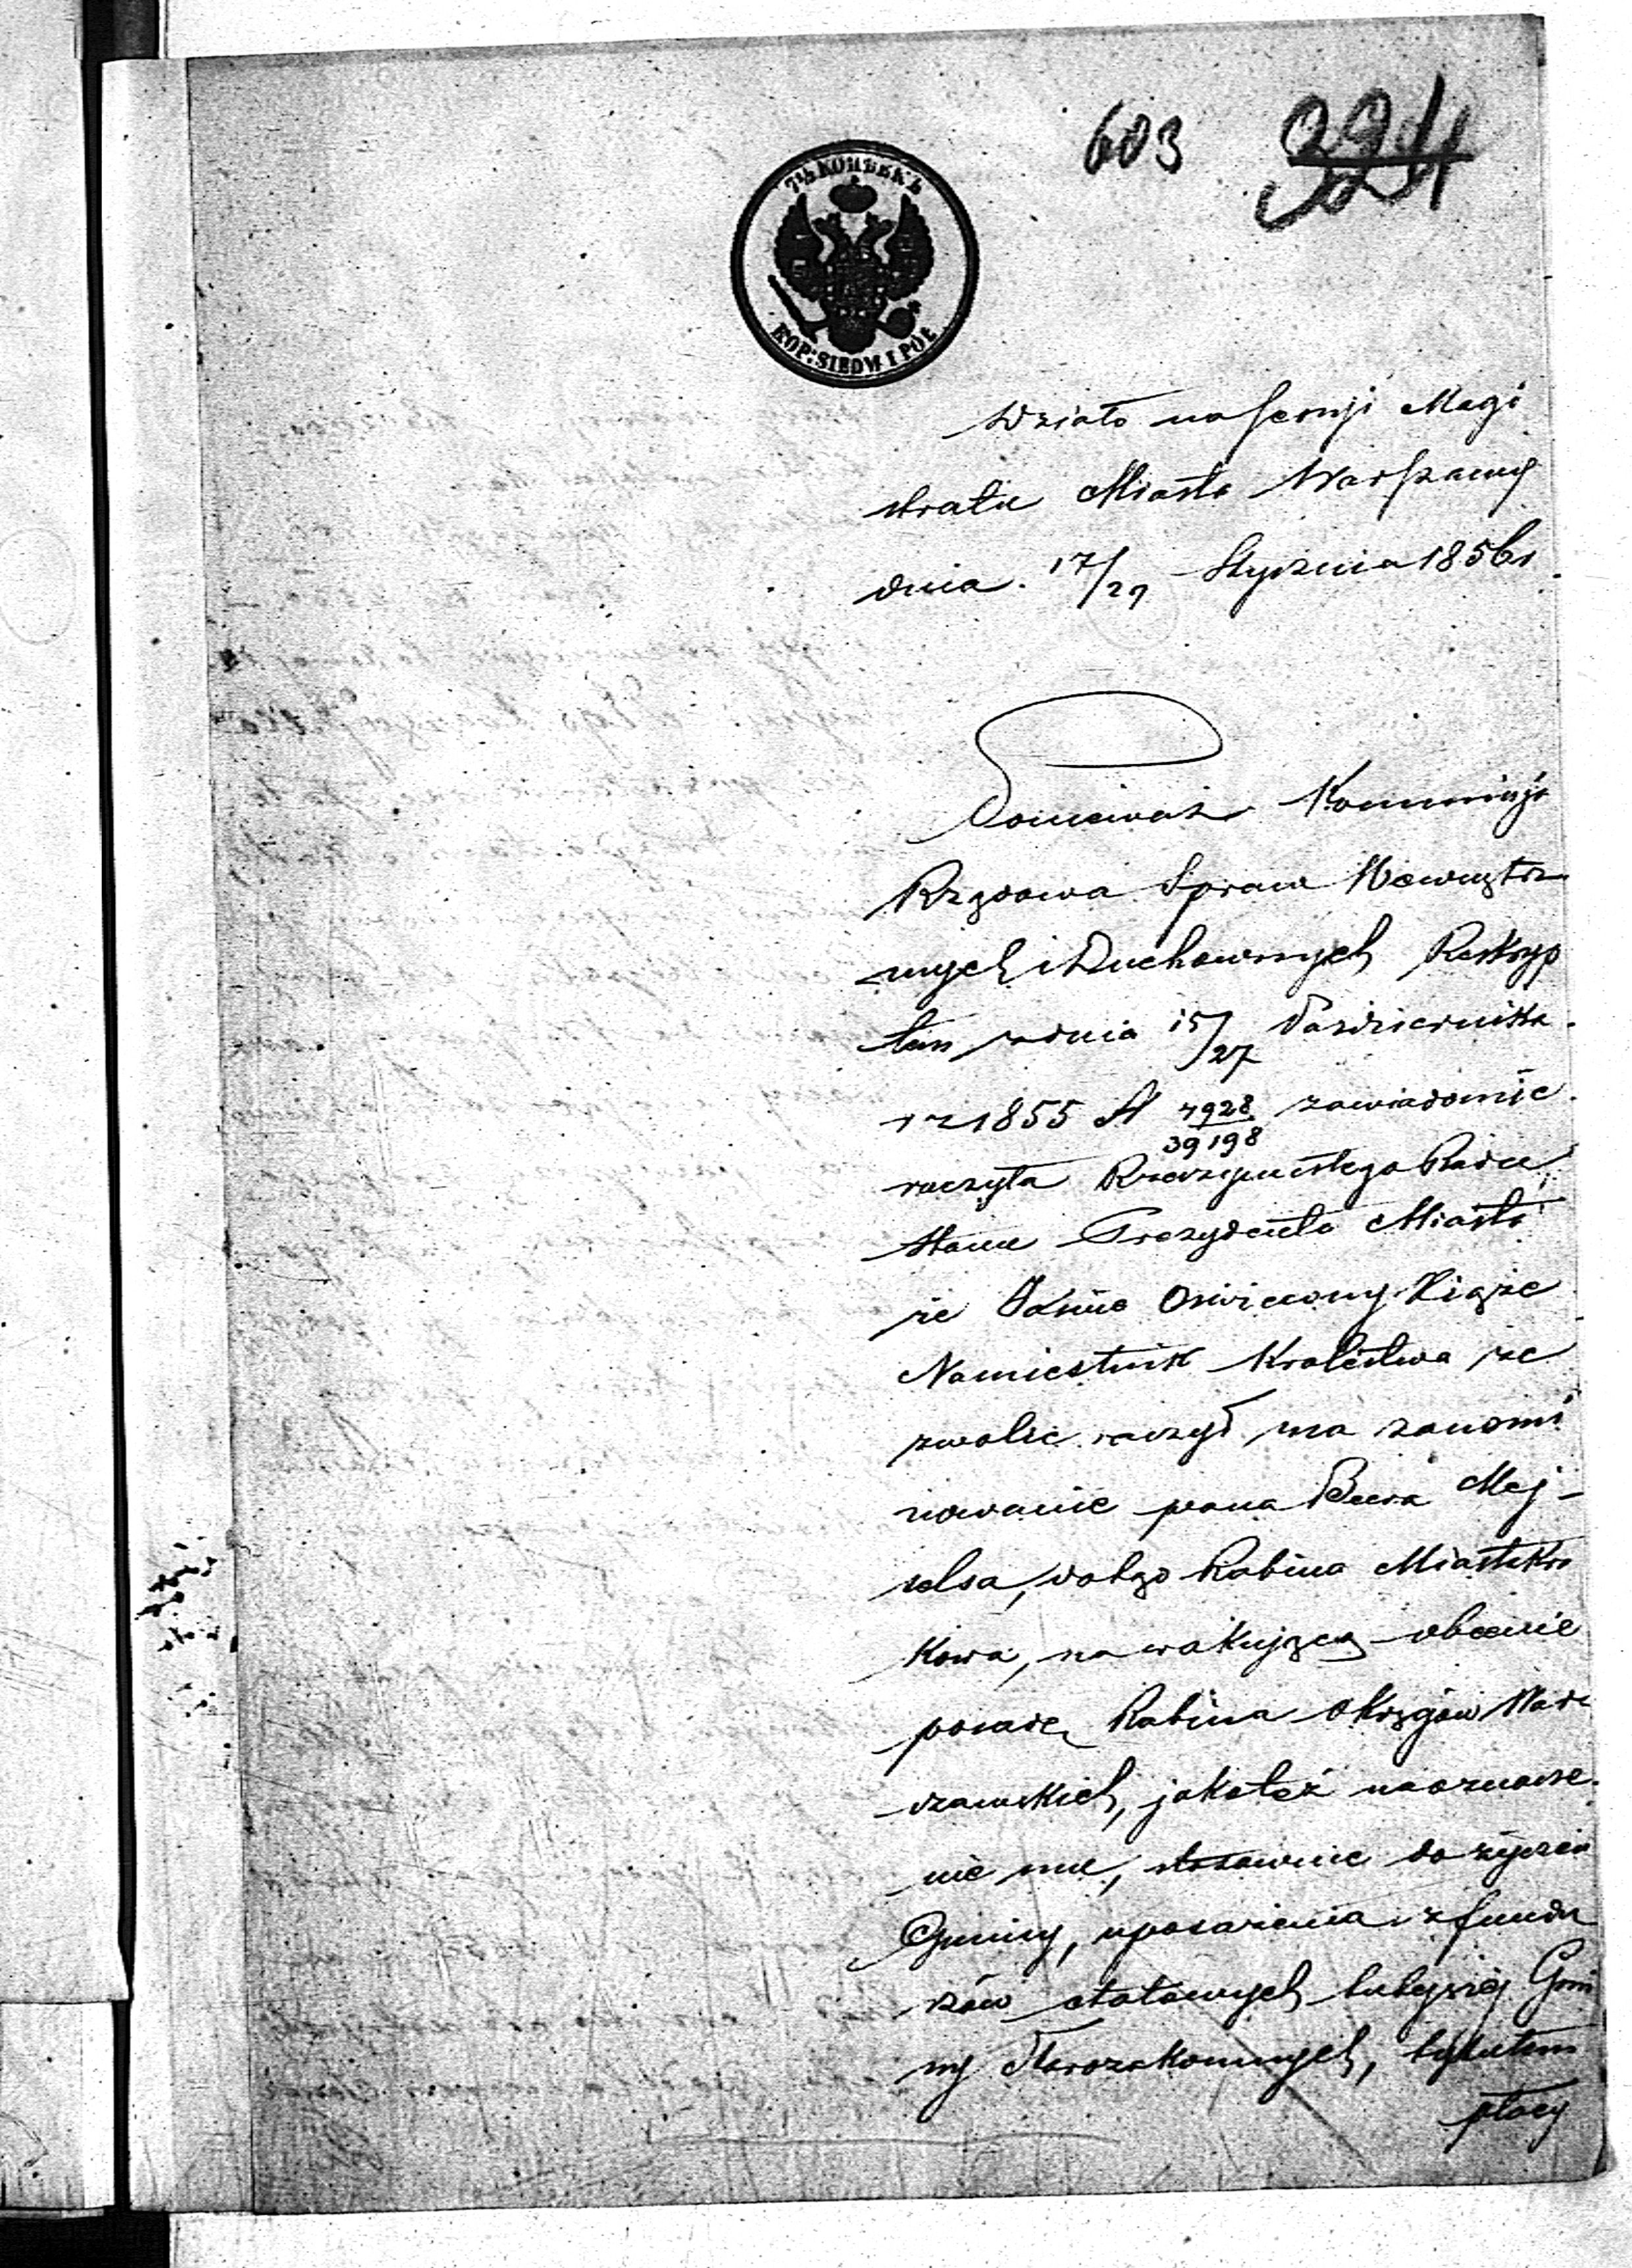 603 324
7½ КОПѢЕКЪ
KOP: SIEDM I POŁ
Działo na Sessyi Magi
stratu Miasta Warszawy
dnia 17/29 Stycznia 1856 r
Ponieważ Kommissja
Rządowa Spraw Wewnętrz
nych i Duchownych Reskryp
tem z dnia 15/27 Października
r z 1855 N 7928/39198 zawiadomić
raczyła Rzeczywistego Radcę
Stanu Prezydenta Miasta
że Jaśnie Oświecony Xiąże
Namiestnik Królestwa ze
zwolić raczył na zanomi
nowanie pana Beera Mej-
zelsa, dotąd Rabina Miasta Kra
kowa, na wakującą obecnie
posadę Rabina Okręgów War
szawskich, jakoteż na oznacze
nie mu, stosownie do życzeń
Gminy, uposażenia z fundu
szów etatowych tutejszej Gmi
ny Starozakonnych, tytułem
płacy